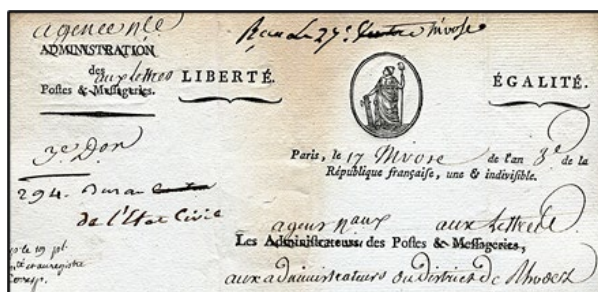 agence n.le
Reçu Le 27.e Nivose
ADMINISTRATION
des aux lettres
Postes & Messageries.
LIBERTÉ.
ÉGALITÉ.
3.e Don
Paris, le 17 Nivose de l'an 3.e de la
République française, une & indivisible.
294. Bureau
de l'Etat Civil
agens n.aux aux Lettres
Les Administrateurs des Postes & Messageries,
aux administrateurs du District de Rhodez